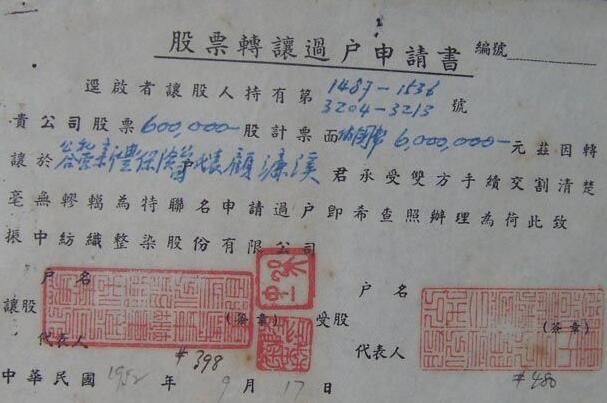 股票轉讓過户申請書 編號
逕啟者讓股人持有第 1487-1536 3204-3213 號
貴公司股票 600,000- 股計票面 6,000,000- 元茲因轉
讓於 代表顧濂溪 君承受雙方手續交割清楚
毫無轇轕為特聯名申請過户即希查照辦理為荷此致
振中紡織整染股份有限公司
户名 户名
讓股 (簽章) 受股 (簽章)
代表人 #398 代表人 #480
中華民國 1952 年 9 月 17 日